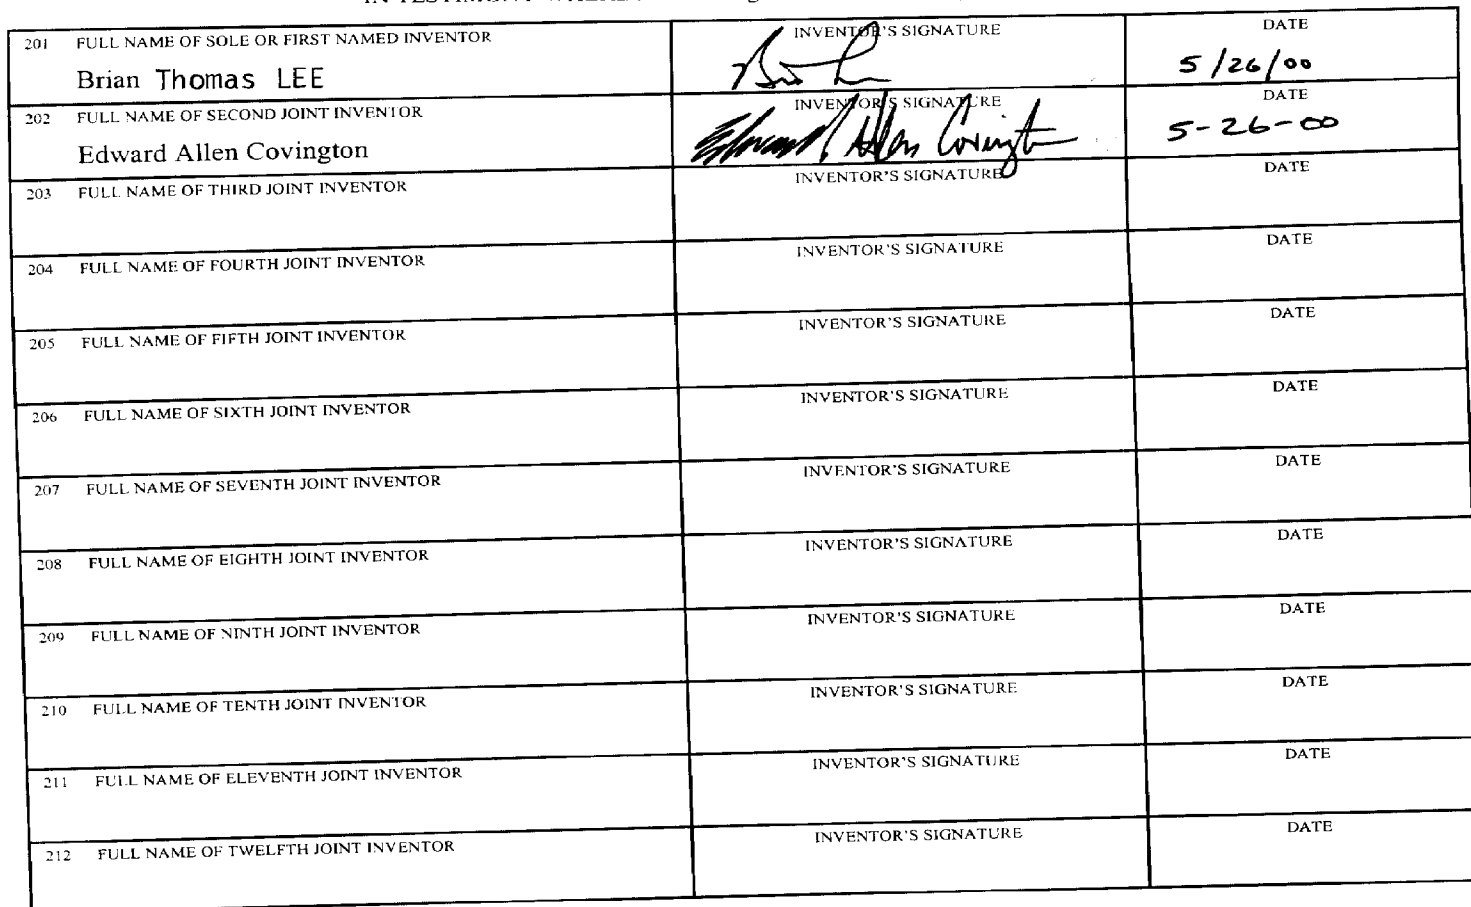 IN TESTIMONY
201 FULL NAME OF SOLE OR FIRST NAMED INVENTOR INVENTOR'S SIGNATURE DATE
Brian Thomas LEE 5/26/00
202 FULL NAME OF SECOND JOINT INVENTOR INVENTOR'S SIGNATURE DATE
Edward Allen Covington Edward Allen Covington 5-26-00
203 FULL NAME OF THIRD JOINT INVENTOR INVENTOR'S SIGNATURE DATE
204 FULL NAME OF FOURTH JOINT INVENTOR INVENTOR'S SIGNATURE DATE
205 FULL NAME OF FIFTH JOINT INVENTOR INVENTOR'S SIGNATURE DATE
206 FULL NAME OF SIXTH JOINT INVENTOR INVENTOR'S SIGNATURE DATE
207 FULL NAME OF SEVENTH JOINT INVENTOR INVENTOR'S SIGNATURE DATE
208 FULL NAME OF EIGHTH JOINT INVENTOR INVENTOR'S SIGNATURE DATE
209 FULL NAME OF NINTH JOINT INVENTOR INVENTOR'S SIGNATURE DATE
210 FULL NAME OF TENTH JOINT INVENTOR INVENTOR'S SIGNATURE DATE
211 FULL NAME OF ELEVENTH JOINT INVENTOR INVENTOR'S SIGNATURE DATE
212 FULL NAME OF TWELFTH JOINT INVENTOR INVENTOR'S SIGNATURE DATE